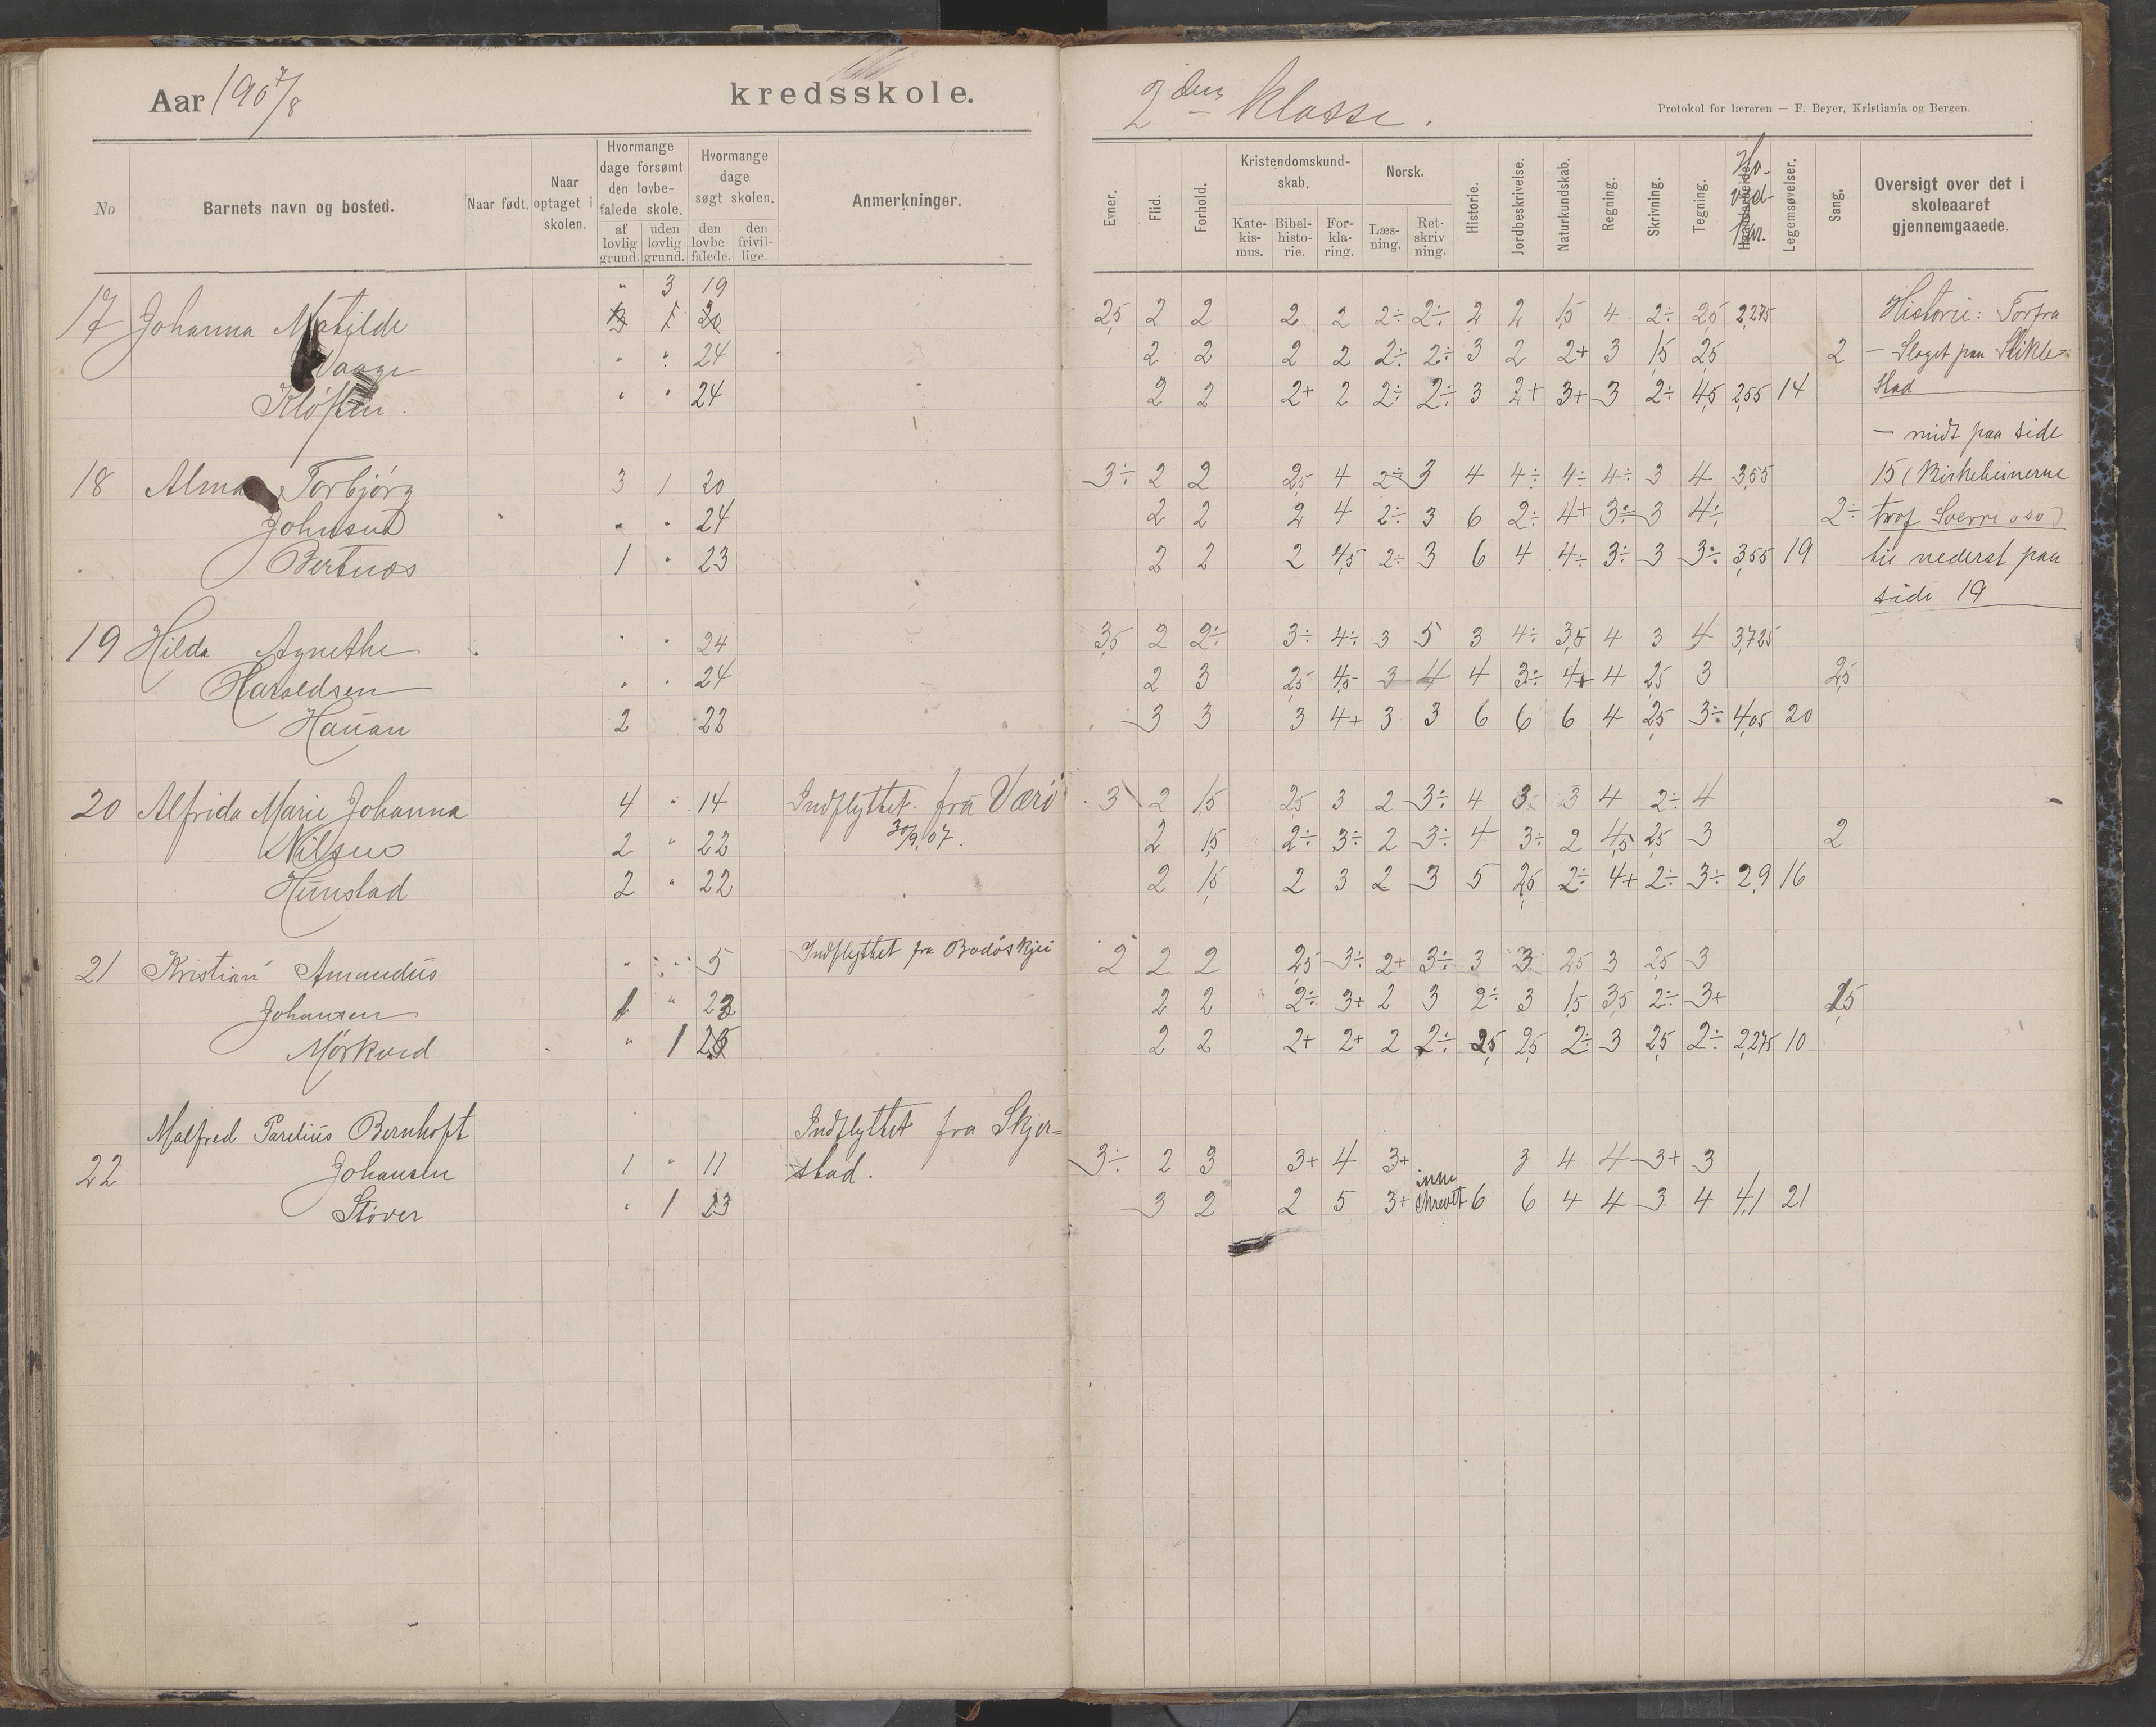 Aar 1907/8
kredsskole.
2den klasse.
Protokol for læreren — F. Beyer, Kristiania og Bergen.
No
Barnets navn og bosted.
Naar født.
Naar optaget i skolen.
Hvormange dage forsømt den lovbefalede skole.
af lovlig grund.
uden lovlig grund.
Hvormange dage søgt skolen.
den lovbefalede.
den frivillige.
Anmerkninger.
Evner.
Flid.
Forhold.
Kristendomskundskab.
Katekismus.
Bibelhistorie.
Forklaring.
Norsk.
Læsning.
Retskrivning.
Historie.
Jordbeskrivelse.
Naturkundskab.
Regning.
Skrivning.
Tegning.
Hovedkar.
Legemsøvelser.
Sang.
Oversigt over det i skoleaaret gjennemgaaede.
" 3 19
17 Johanna Matilde 2,5 2 2 2 2 2÷ 2÷ 2 2 1,5 4 2÷ 2,5 2,275 Historie: Forfra
Vaage " " 24 2 2 2 2 2÷ 2÷ 3 2 2+ 3 1,5 2,5 2 — Slaget paa Stikle-
Kløften. " " 24 2 2 2+ 2 2÷ 2÷ 3 2+ 3+ 3 2÷ 4,5 2,55 14 stad
— midt paa side
18 Alma Torbjørg 3 1 20 3÷ 2 2 2,5 4 2÷ 3 4 4÷ 4÷ 4÷ 3 4 3,55 15 (Birkebeinerne
Johnsen " " 24 2 2 2 4 2÷ 3 6 2÷ 4+ 3÷ 3 4÷ 2÷ traf Sverre osv)
Bertnæs 1 " 23 2 2 2 4,5 2÷ 3 6 4 4÷ 3÷ 3 3÷ 3,55 19 til nederst paa
side 19
19 Hilda Agnethe " " 24 3,5 2 2÷ 3÷ 4÷ 3 5 3 4÷ 3,5 4 3 4 3,725
Haraldsen " " 24 2 3 2,5 4,5 3 4 4 3÷ 4+ 4 2,5 3 2,5
Hauan 2 22 3 3 3 4+ 3 3 6 6 6 4 2,5 3÷ 4,05 20
20 Alfrida Marie Johanna 4 " 14 Indflyttet fra Værö 3 2 1,5 2,5 3 2 3÷ 4 3 3 4 2÷ 4
Nilsen 2 " 22 30/9.07. 2 1,5 2÷ 3÷ 2 3÷ 4 3÷ 2 4,5 2,5 3 2
Hunstad 2 " 22 2 1,5 2 3 2 3 5 2,5 2÷ 4+ 2÷ 3÷ 2,9 16
21 Kristian Amandus " " 5 Indflyttet fra Bodöskjei 2 2 2 2,5 3÷ 2+ 3÷ 3 3 2,5 3 2,5 3
Johansen 1 " 23 2 2 2÷ 3+ 2 3 2÷ 3 1,5 3,5 2÷ 3+ 1,5
Mörkved " 1 2 2 2+ 2+ 2 2÷ 2,5 2,5 2÷ 3 2,5 2÷ 2,275 10
Malfred Parelius Bernhoft Indflyttet fra Skjer=
22 Johansen 1 " 11 stad. 3÷ 2 3 3+ 4 3+ 3 4 4 3+ 3
Støver " 1 23 3 2 2 5 3+ skrevet 6 6 4 4 3 4 4,1 21